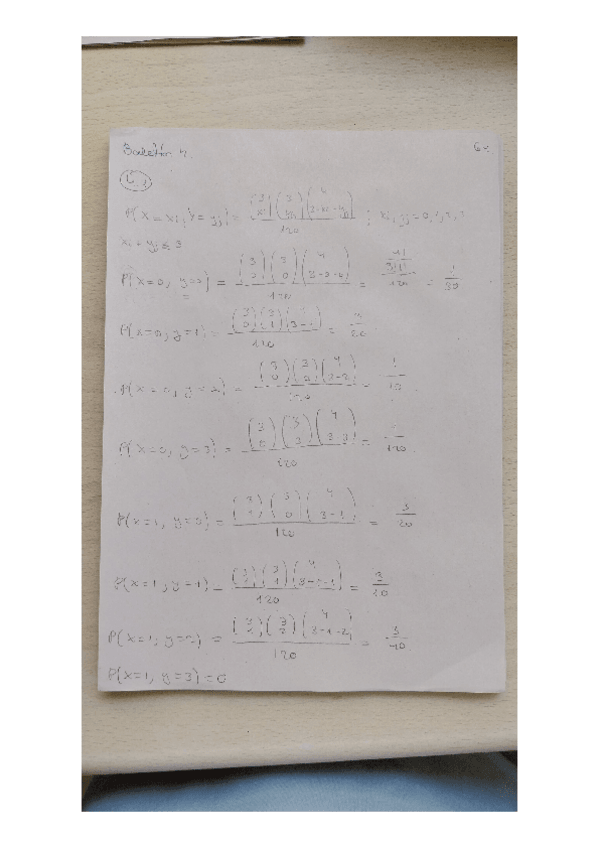 Boletín 4
6.
1
P(X=xi, Y=yj) = (3 xi)(3 yj)(4 3-xi-yj) / 120 ; xi, yj = 0,1,2,3
xi + yj ≤ 3
P(X=0, Y=0) = (3 0)(3 0)(4 3-0-0) / 120 = 4!/3!1! / 120 = 1/30
P(X=0, Y=1) = (3 0)(3 1)( 3-1) / 120 = /20
P(X=0, Y=2) = (3 0)(3 2)(4 3-2) / 120 = 1/10
P(X=0, Y=3) = (3 0)(3 3)(4 3-3) / 120 = 1/120
P(X=1, Y=0) = (3 1)(3 0)(4 3-1) / 120 = 3/20
P(X=1, Y=1) = (3 1)(3 1)(4 3-1-1) / 120 = 3/10
P(X=1, Y=2) = (3 1)(3 2)(4 3-1-2) / 120 = 3/40
P(X=1, Y=3) = 0